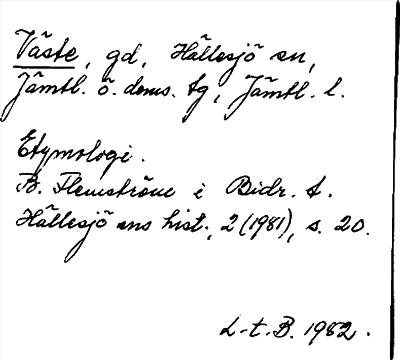 Väste, gd, Hällesjö sn,
Jämtl. ö. doms. tg, Jämtl. l.
Etymologi.
B. Flemström i Bidr. t.
Hällesjö sns hist., 2 (1981), s. 20.
L-t. B. 1982.